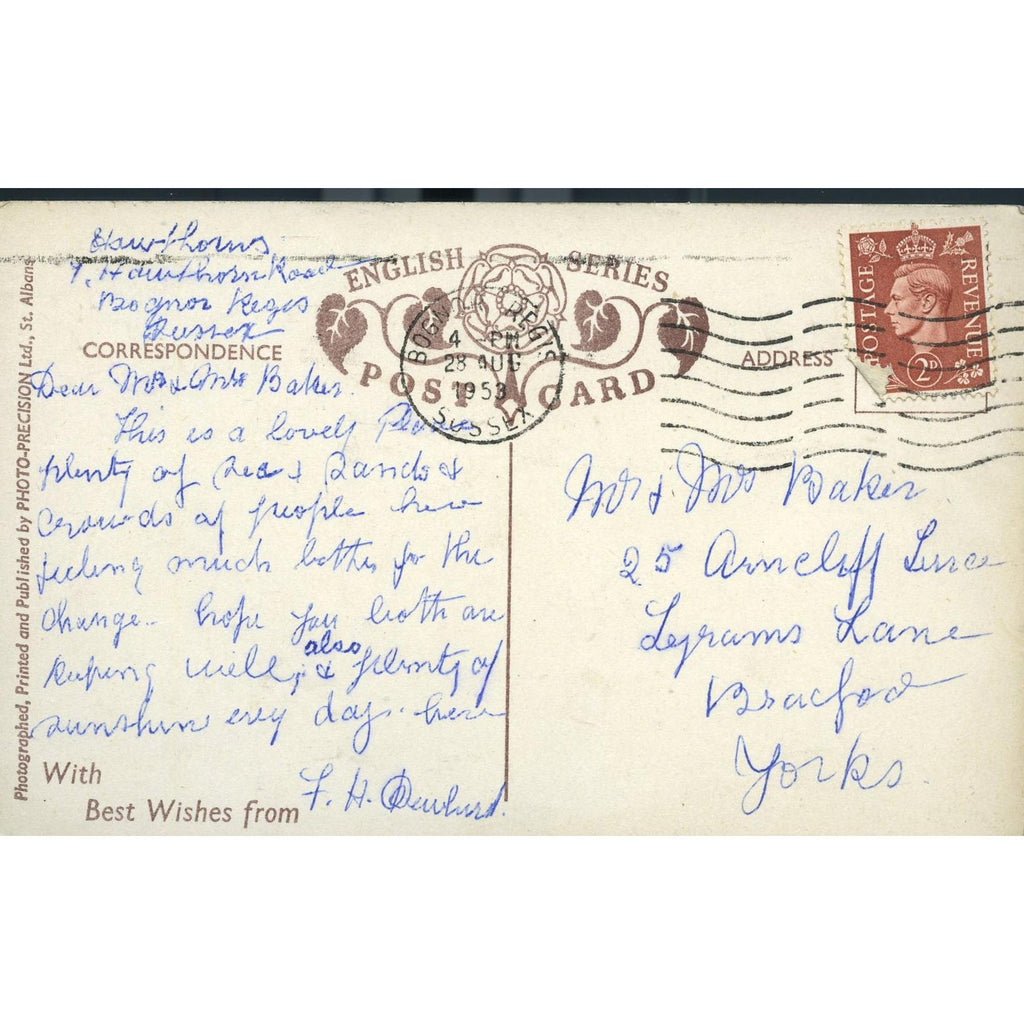 Hawthorns
7, Hawthorn Road
Bognor Regis
Sussex
ENGLISH SERIES
POST CARD
CORRESPONDENCE
ADDRESS
BOGNOR REGIS
4 - PM
28 AUG
1953
SUSSEX
POSTAGE REVENUE
2D
Dear Mr & Mrs Baker
This is a lovely Place
plenty of Sea & Sands &
Crowds of people here
feeling much better for the
Change.. hope you both are
keeping well, also & plenty of
sunshine every day. here
With
Best Wishes from
F. H.
Mr & Mrs Baker
25 Arncliff
Legrams Lane
Bradford
Yorks.
Photographed, Printed and Published by PHOTO-PRECISION Ltd., St. Albans